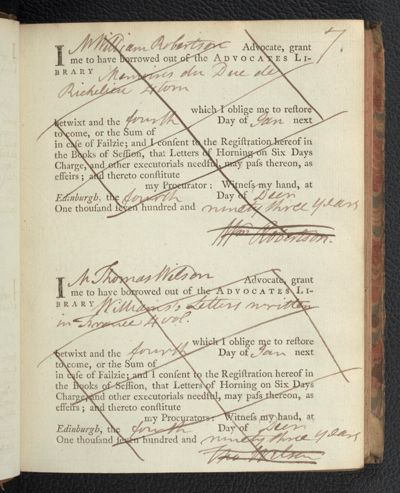 7
I Mr William Robertson Advocate, grant
me to have borrowed out of the ADVOCATES LI-
BRARY Memoires du Duc de
Richelieu 4 tom
which I oblige me to reſtore
betwixt and the fourth Day of Jan next
to come, or the Sum of
in caſe of Failzie; and I conſent to the Regiſtration hereof in
the Books of Seſſion, that Letters of Horning on Six Days
Charge, and other executorials needful, may paſs thereon, as
effeirs; and thereto conſtitute
my Procurator: Witneſs my hand, at
Edinburgh, the fourth Day of Decr
One thouſand ſeven hundred and ninety three years
Wm Robertson.
I Mr Thomas Wilson Advocate, grant
me to have borrowed out of the ADVOCATES LI-
BRARY Williams's Letters written
in France 4 vol.
which I oblige me to reſtore
betwixt and the fourth Day of Jan next
to come, or the Sum of
in caſe of Failzie; and I conſent to the Regiſtration hereof in
the Books of Seſſion, that Letters of Horning on Six Days
Charge, and other executorials needful, may paſs thereon, as
effeirs; and thereto conſtitute
my Procurator: Witneſs my hand, at
Edinburgh, the fourth Day of Decr
One thouſand ſeven hundred and ninety three years
Tho Wilson